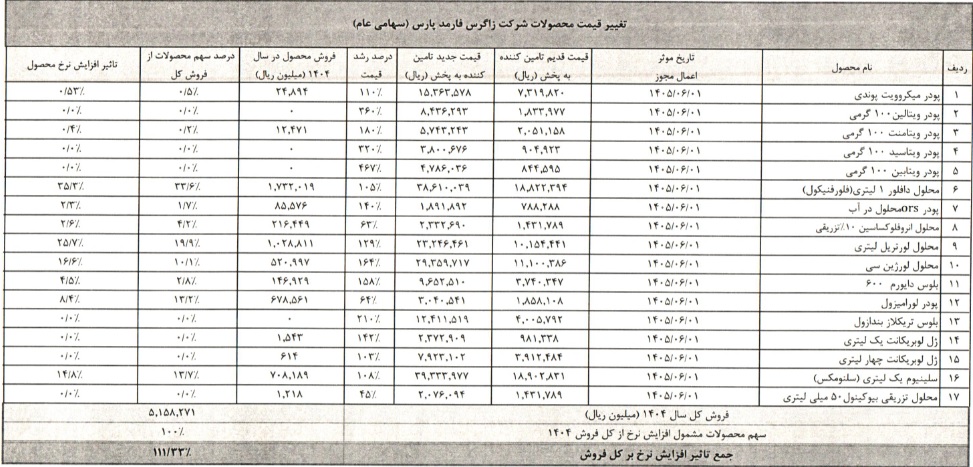 تغییر قیمت محصولات شرکت زاگرس فارمد پارس (سهامی عام)
ردیف نام محصول تاریخ موثر اعمال مجوز قیمت قدیم تامین کننده به پخش (ریال) قیمت جدید تامین کننده به پخش (ریال) درصد رشد قیمت فروش محصول در سال ۱۴۰۴ (میلیون ریال) درصد سهم محصولات از فروش کل تاثیر افزایش نرخ محصول
۱ پودر میکروویت پوندی ۱۴۰۵/۰۶/۰۱ ۷,۳۱۹,۸۲۰ ۱۵,۳۶۳,۵۷۸ ۱۱۰٪ ۲۴,۸۹۴ ۰/۵٪ ۰/۵۳٪
۲ پودر ویتالین۱۰۰ گرمی ۱۴۰۵/۰۶/۰۱ ۱,۸۳۳,۹۷۷ ۸,۴۳۶,۲۹۳ ۳۶۰٪ ۰ ۰/۰٪ ۰/۰٪
۳ پودر ویتامنت ۱۰۰ گرمی ۱۴۰۵/۰۶/۰۱ ۲,۰۵۱,۱۵۸ ۵,۷۴۳,۲۴۳ ۱۸۰٪ ۱۲,۴۷۱ ۰/۲٪ ۰/۴٪
۴ پودر ویتاسید ۱۰۰ گرمی ۱۴۰۵/۰۶/۰۱ ۹۰۴,۹۲۳ ۳,۸۰۰,۶۷۶ ۳۲۰٪ ۰ ۰/۰٪ ۰/۰٪
۵ پودر ویتابین ۱۰۰ گرمی ۱۴۰۵/۰۶/۰۱ ۸۴۴,۵۹۵ ۴,۷۸۶,۰۳۶ ۴۶۷٪ ۰ ۰/۰٪ ۰/۰٪
۶ محلول دافلور ۱ لیتری(فلورفنیکول) ۱۴۰۵/۰۶/۰۱ ۱۸,۸۲۲,۳۹۴ ۳۸,۶۱۰,۰۳۹ ۱۰۵٪ ۱,۷۳۲,۰۱۹ ۳۳/۶٪ ۳۵/۳٪
۷ پودر orsمحلول در آب ۱۴۰۵/۰۶/۰۱ ۷۸۸,۲۸۸ ۱,۸۹۱,۸۹۲ ۱۴۰٪ ۸۵,۵۷۶ ۱/۷٪ ۲/۳٪
۸ محلول انروفلوکساسین ۱۰٪تزریقی ۱۴۰۵/۰۶/۰۱ ۱,۴۳۱,۷۸۹ ۲,۳۳۲,۶۹۰ ۶۳٪ ۲۱۶,۴۴۹ ۴/۲٪ ۲/۶٪
۹ محلول لورتریل لیتری ۱۴۰۵/۰۶/۰۱ ۱۰,۱۵۴,۴۴۱ ۲۳,۲۴۶,۴۶۱ ۱۲۹٪ ۱,۰۲۸,۸۱۱ ۱۹/۹٪ ۲۵/۷٪
۱۰ محلول لورژین سی ۱۴۰۵/۰۶/۰۱ ۱۱,۱۰۰,۳۸۶ ۲۹,۳۵۹,۷۱۷ ۱۶۴٪ ۵۲۰,۹۹۷ ۱۰/۱٪ ۱۶/۶٪
۱۱ بلوس دایورم ۶۰۰ ۱۴۰۵/۰۶/۰۱ ۳,۷۴۰,۳۴۷ ۹,۶۵۲,۵۱۰ ۱۵۸٪ ۱۴۶,۹۲۹ ۲/۸٪ ۴/۵٪
۱۲ پودر لورامیزول ۱۴۰۵/۰۶/۰۱ ۱,۸۵۸,۱۰۸ ۳,۰۴۰,۵۴۱ ۶۴٪ ۶۷۸,۵۶۱ ۱۳/۲٪ ۸/۴٪
۱۳ بلوس تریکلاز بندازول ۱۴۰۵/۰۶/۰۱ ۴,۰۰۵,۷۹۲ ۱۲,۴۱۱,۵۱۹ ۲۱۰٪ ۰ ۰/۰٪ ۰/۰٪
۱۴ ژل لوبریکانت یک لیتری ۱۴۰۵/۰۶/۰۱ ۹۸۱,۳۳۸ ۲,۳۷۲,۹۰۹ ۱۴۲٪ ۱,۵۴۳ ۰/۰٪ ۰/۰٪
۱۵ ژل لوبریکانت چهار لیتری ۱۴۰۵/۰۶/۰۱ ۳,۹۱۲,۴۸۴ ۷,۹۲۳,۱۰۲ ۱۰۳٪ ۶۱۴ ۰/۰٪ ۰/۰٪
۱۶ سلنیوم یک لیتری (سلنومکس) ۱۴۰۵/۰۶/۰۱ ۱۸,۹۰۲,۸۳۱ ۳۹,۳۳۳,۹۷۷ ۱۰۸٪ ۷۰۸,۱۸۹ ۱۳/۷٪ ۱۴/۸٪
۱۷ محلول تزریقی بیوکینول۵۰ میلی لیتری ۱۴۰۵/۰۶/۰۱ ۱,۴۳۱,۷۸۹ ۲,۰۷۶,۰۹۴ ۴۵٪ ۱,۲۱۸ ۰/۰٪ ۰/۰٪
فروش کل سال ۱۴۰۴ (میلیون ریال) ۵,۱۵۸,۲۷۱
سهم محصولات مشمول افزایش نرخ از کل فروش ۱۴۰۴ ۱۰۰٪
جمع تاثیر افزایش نرخ بر کل فروش ۱۱۱/۳۳٪